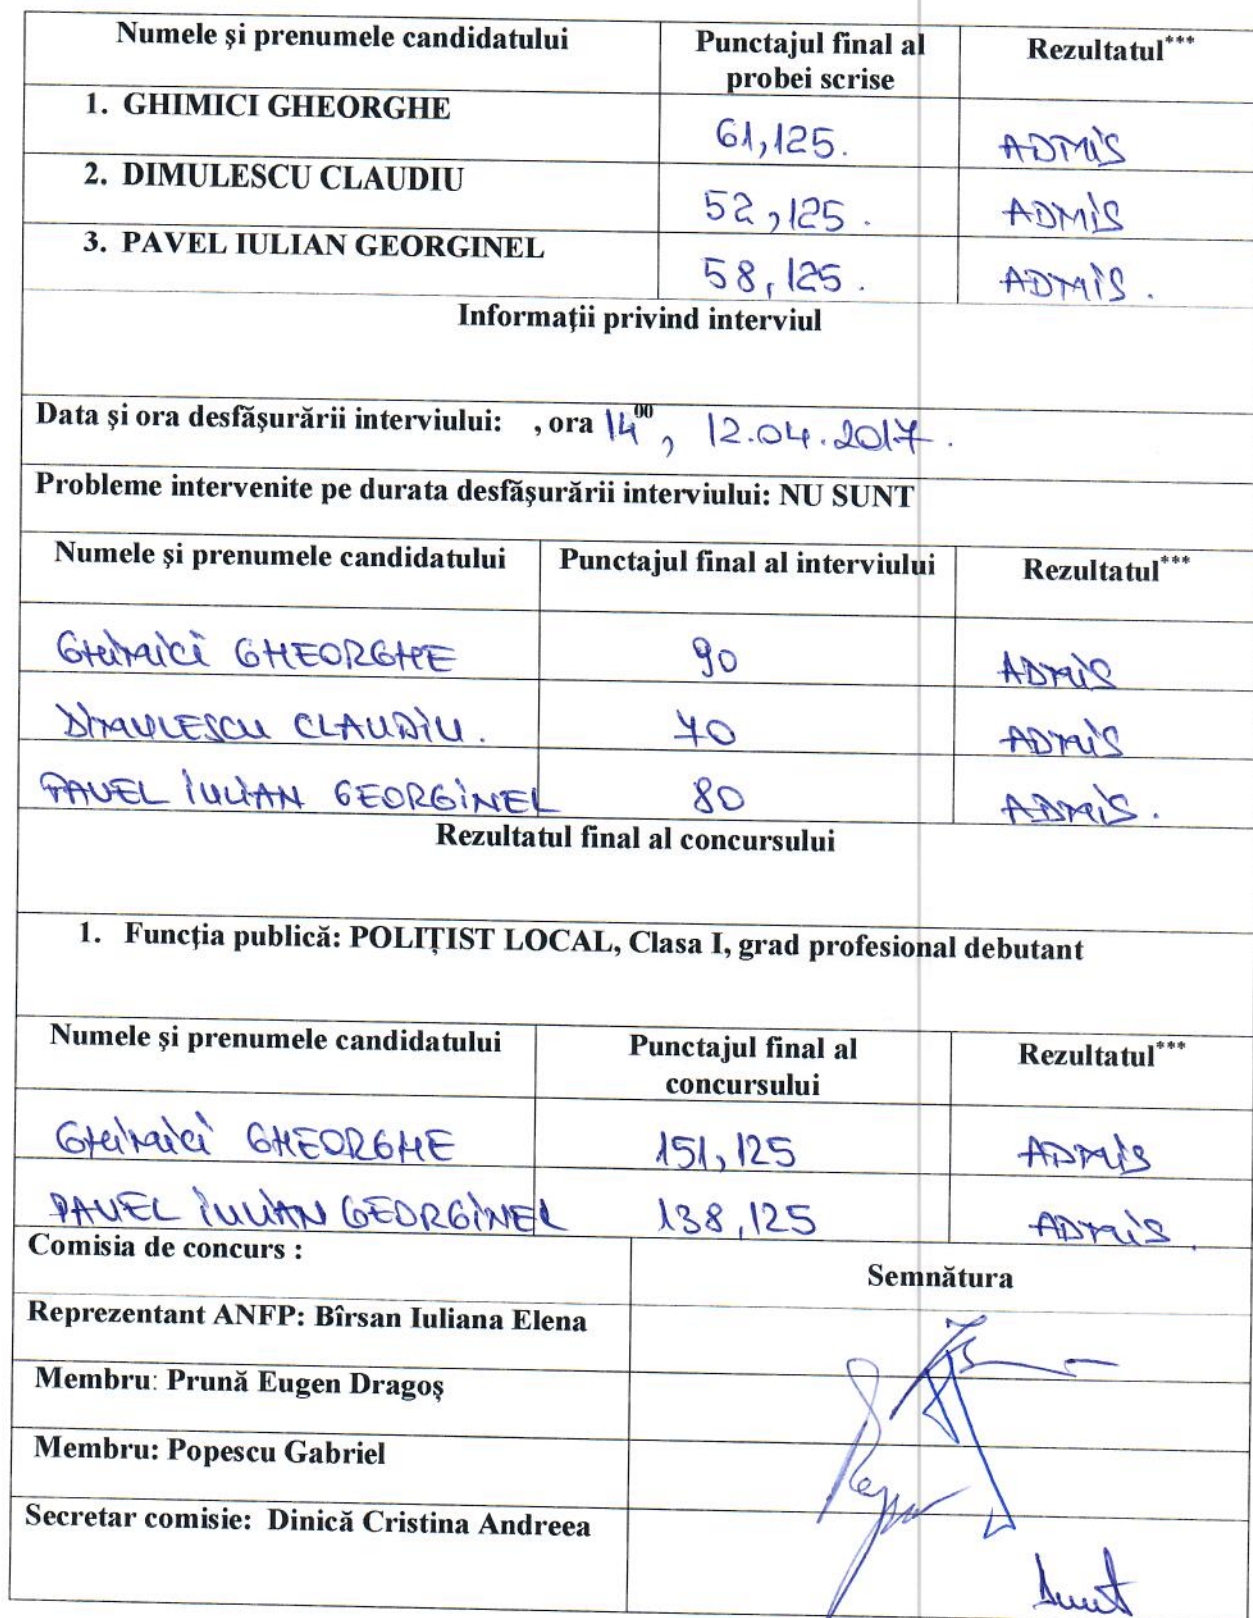 Numele şi prenumele candidatului Punctajul final al probei scrise Rezultatul***
1. GHIMICI GHEORGHE 61,125. ADMIS
2. DIMULESCU CLAUDIU 52,125. ADMIS
3. PAVEL IULIAN GEORGINEL 58,125. ADMIS.
Informaţii privind interviul
Data şi ora desfăşurării interviului: , ora 14⁰⁰, 12.04.2017.
Probleme intervenite pe durata desfăşurării interviului: NU SUNT
Numele şi prenumele candidatului Punctajul final al interviului Rezultatul***
GHIMICI GHEORGHE 90 ADMIS
DIMULESCU CLAUDIU. 70 ADMIS
PAVEL IULIAN GEORGINEL 80 ADMIS.
Rezultatul final al concursului
1. Funcţia publică: POLIŢIST LOCAL, Clasa I, grad profesional debutant
Numele şi prenumele candidatului Punctajul final al concursului Rezultatul***
GHIMICI GHEORGHE 151,125 ADMIS
PAVEL IULIAN GEORGINEL 138,125 ADMIS.
Comisia de concurs :
Semnătura
Reprezentant ANFP: Bîrsan Iuliana Elena
Membru: Prună Eugen Dragoş
Membru: Popescu Gabriel
Secretar comisie: Dinică Cristina Andreea